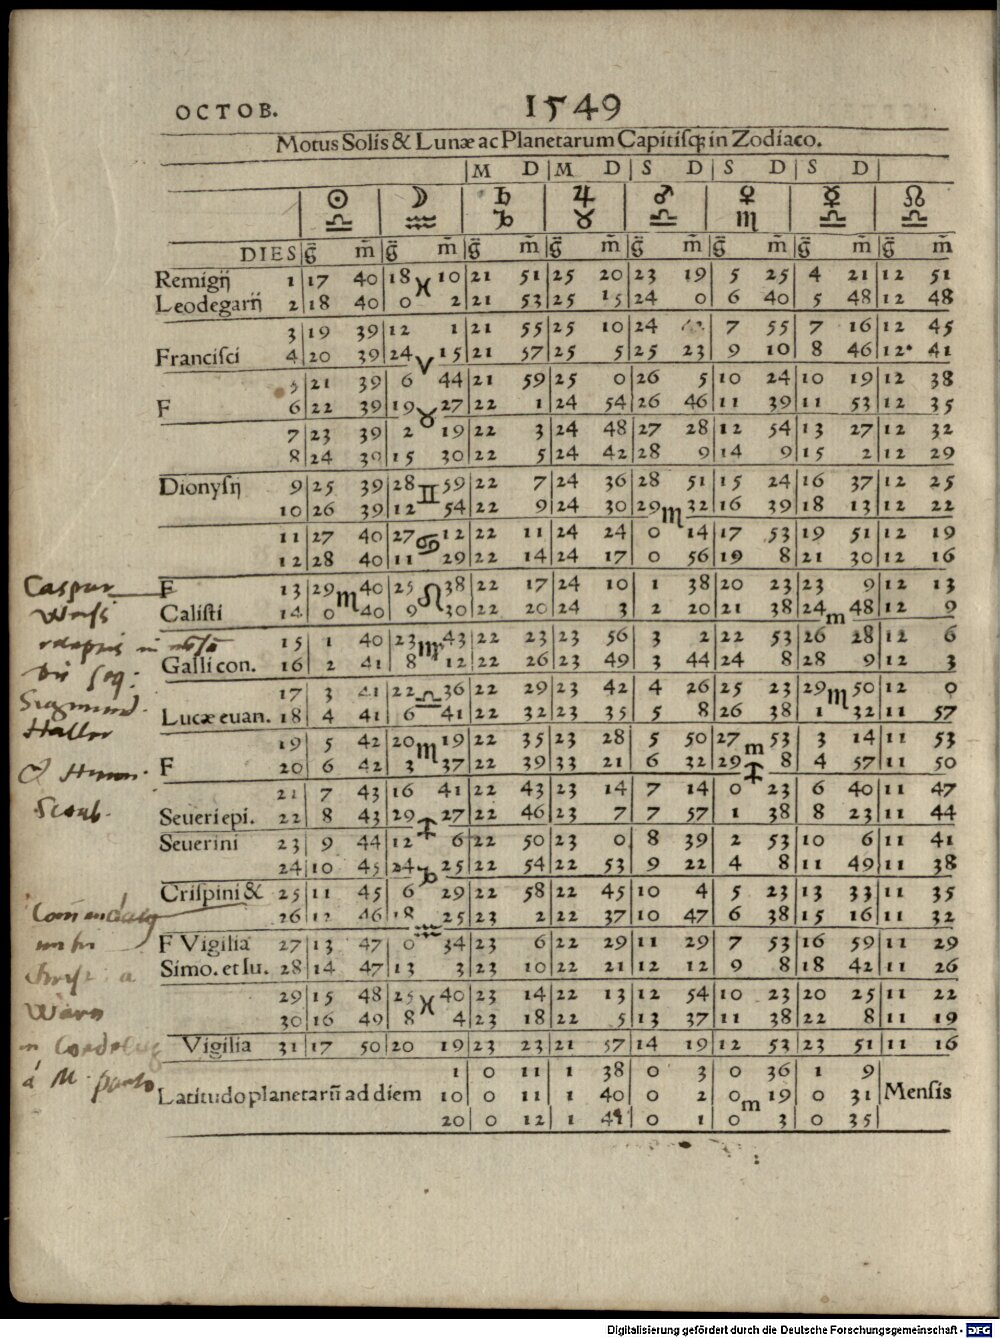 OCTOB. 1549
Motus Solis & Lunæ ac Planetarum Capitisq; in Zodiaco.
M D M D S D S D S D
☉ ☽ ♄ ♃ ♂ ♀ ☿ ☊
♎ ♒ ♑ ♉ ♎ ♏ ♎ ♎
DIES g̃ m̃ g̃ m̃ g̃ m̃ g̃ m̃ g̃ m̃ g̃ m̃ g̃ m̃ g̃ m̃
Remigij 1 17 40 18 ♓ 10 21 51 25 20 23 19 5 25 4 21 12 51
Leodegarij 2 18 40 0 2 21 53 25 15 24 0 6 40 5 48 12 48
3 19 39 12 1 21 55 25 10 24 7 55 7 16 12 45
Franciſci 4 20 39 24 ♈ 15 21 57 25 5 25 23 9 10 8 46 12 41
5 21 39 6 44 21 59 25 0 26 5 10 24 10 19 12 38
F 6 22 39 19 ♉ 27 22 1 24 54 26 46 11 39 11 53 12 35
7 23 39 2 19 22 3 24 48 27 28 12 54 13 27 12 32
8 24 39 15 30 22 5 24 42 28 9 14 9 15 2 12 29
Dionyſij 9 25 39 28 ♊ 59 22 7 24 36 28 51 15 24 16 37 12 25
10 26 39 12 54 22 9 24 30 29 ♏ 32 16 39 18 13 12 22
11 27 40 27 ♋ 12 22 11 24 24 0 14 17 53 19 51 12 19
12 28 40 11 29 22 14 24 17 0 56 19 8 21 30 12 16
F 13 29 ♏ 40 25 ♌ 38 22 17 24 10 1 38 20 23 23 9 12 13
Caliſti 14 0 40 9 30 22 20 24 3 2 20 21 38 24 m 48 12 9
15 1 40 23 ♍ 43 22 23 23 56 3 2 22 53 26 28 12 6
Galli con. 16 2 41 8 12 22 26 23 49 3 44 24 8 28 9 12 3
17 3 41 22 ♎ 36 22 29 23 42 4 26 25 23 29 ♏ 50 12 0
Lucæ euan. 18 4 41 6 41 22 32 23 35 5 8 26 38 1 32 11 57
19 5 42 20 ♏ 19 22 35 23 28 5 50 27 m 53 3 14 11 53
F 20 6 42 3 37 22 39 33 21 6 32 29 ♐ 8 4 57 11 50
21 7 43 16 41 22 43 23 14 7 14 0 23 6 40 11 47
Seueri epi. 22 8 43 29 ♐ 27 22 46 23 7 7 57 1 38 8 23 11 44
Seuerini 23 9 44 12 6 22 50 23 0 8 39 2 53 10 6 11 41
24 10 45 24 ♑ 25 22 54 22 53 9 22 4 8 11 49 11 38
Criſpini & 25 11 45 6 29 22 58 22 45 10 4 5 23 13 33 11 35
26 12 46 18 ♒ 25 23 2 22 37 10 47 6 38 15 16 11 32
F Vigilia 27 13 47 0 34 23 6 22 29 11 29 7 53 16 59 11 29
Simo. et Iu. 28 14 47 13 3 23 10 22 21 12 12 9 8 18 42 11 26
29 15 48 25 ♓ 40 23 14 22 13 12 54 10 23 20 25 11 22
30 16 49 8 4 23 18 22 5 13 37 11 38 22 8 11 19
Vigilia 31 17 50 20 19 23 23 21 57 14 19 12 53 23 51 11 16
1 0 11 1 38 0 3 0 36 1 9
Latitudo planetarũ ad diem 10 0 11 1 40 0 2 0 m 19 0 31 Menſis
20 0 12 1 41 0 1 0 3 0 35
Caspar
Haller
Digitalisierung gefördert durch die Deutsche Forschungsgemeinschaft - DFG